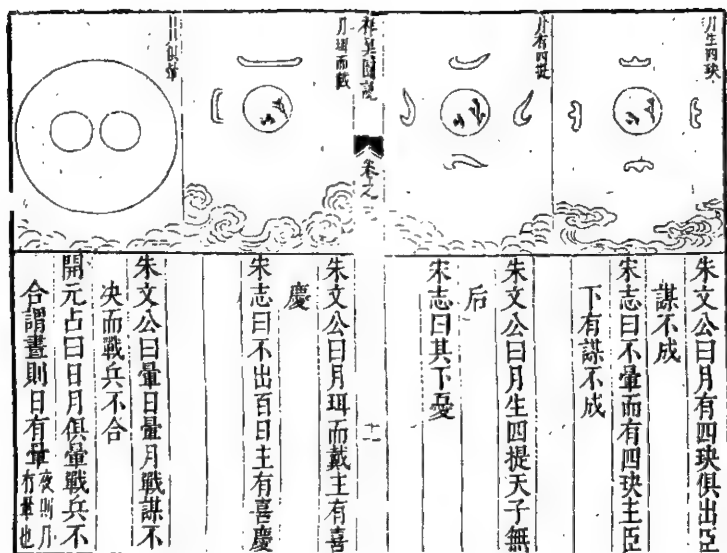 月生四玦
朱文公曰月有四玦俱出臣
謀不成
宋志曰不暈而有四玦主臣
下有謀不成
月有四提
朱文公曰月生四提天子無
后
宋志曰其下憂
祥異圖說
卷之
月珥而戴
朱文公曰月珥而戴主有喜
慶
宋志曰不出百日主有喜慶
俱暈
朱文公曰暈日暈月戰謀不
决而戰兵不合
開元占曰日月俱暈戰兵不
合謂晝則日有暈夜則月有暈也